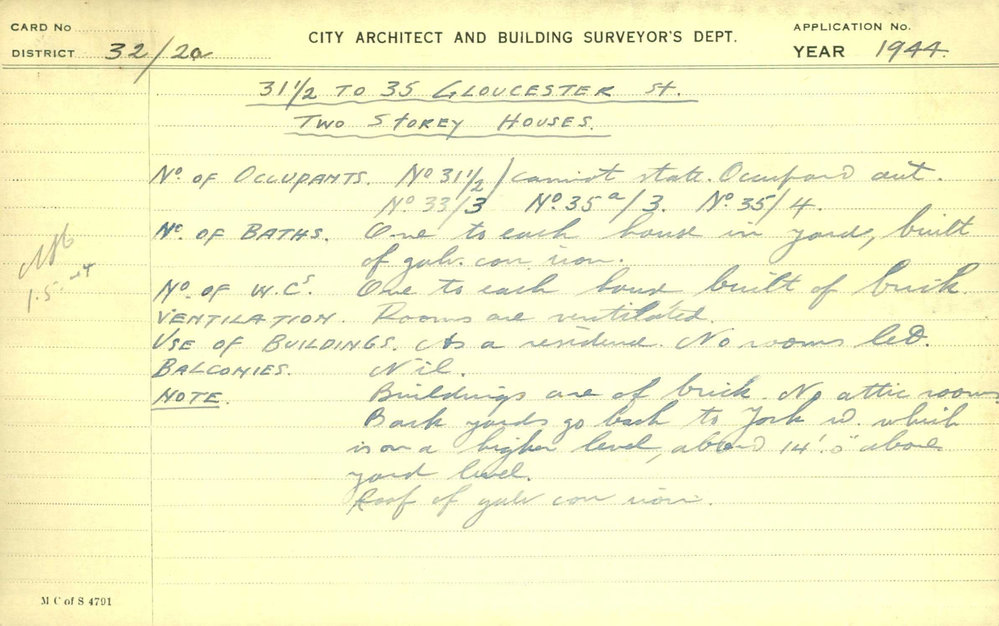 CARD No
DISTRICT 32/2a
CITY ARCHITECT AND BUILDING SURVEYOR'S DEPT.
APPLICATION No.
YEAR 1944.
31 1/2 TO 35 GLOUCESTER St.
TWO STOREY HOUSES.
No. OF OCCUPANTS. No 31 1/2 / cannot state. Occupant out.
No 33/3 No 35a/3. No 35/4.
No. OF BATHS. One to each house in yards, built
of galv. corr iron.
No. OF W.Cs. One to each house built of brick
VENTILATION. Rooms are ventilated.
USE OF BUILDINGS. As a residence. No rooms let.
BALCONIES. Nil.
NOTE. Buildings are of brick. No attic rooms
Back yards go back to York rd. which
is on a higher level, about 14' above
yard level.
Roof of galv corr iron.
M C of S 4791